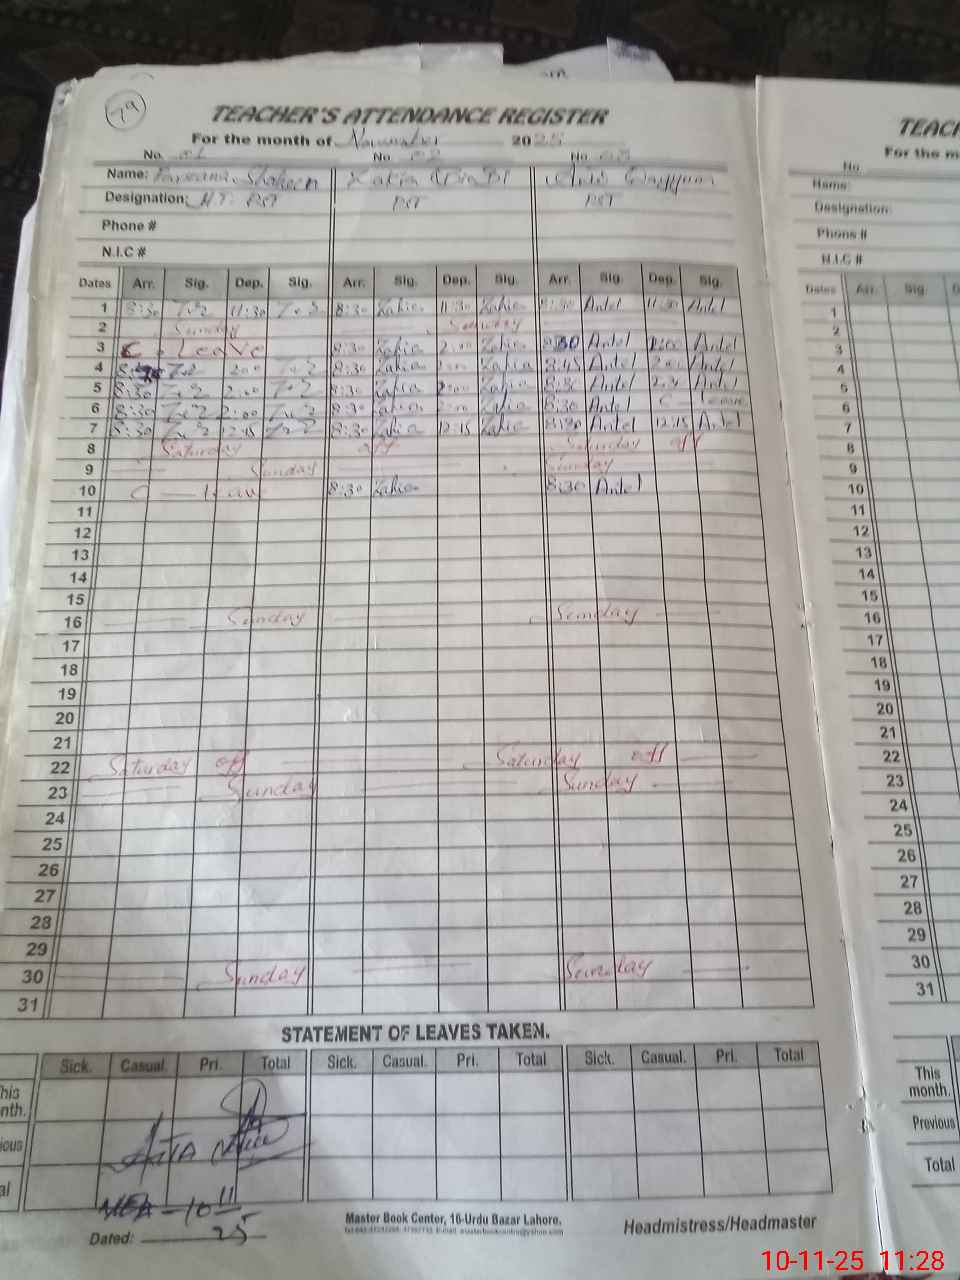 79
TEACHER'S ATTENDANCE REGISTER
For the month of November 2025
No. 01 No. 02 No. 03
Name: Parveena Shaheen Zakia
Designation: H.T. PST PST PST
Phone #
N.I.C #
Dates Arr. Sig. Dep. Sig. Arr. Sig. Dep. Sig. Arr. Sig. Dep. Sig.
1 8:30 11:30 8:30 Zakia 11:30 Zakia 8:30 Antel 11:30 Antel
2 Sunday Sunday
3 C. Leave 8:30 Zakia 2:00 Zakia 8:30 Antel 2:00 Antel
4 2:00 8:30 Zakia 2:00 Zakia 8:45 Antel 2:00 Antel
5 8:30 2:00 8:30 Zakia 2:00 Zakia 8:30 Antel Antel
6 8:30 2:00 8:30 Zakia 2:00 Zakia 8:30 Antel C - Leave
7 8:30 12:15 8:30 Zakia 12:15 Zakia 8:30 Antel 12:15 Antel
8 Saturday off Saturday off
9 Sunday Sunday
10 C Leave 8:30 Zakia 8:30 Antel
11
12
13
14
15
16 Sunday Sunday
17
18
19
20
21
22 Saturday off Saturday off
23 Sunday Sunday
24
25
26
27
28
29
30 Sunday Sunday
31
STATEMENT OF LEAVES TAKEN.
Sick. Casual. Pri. Total Sick. Casual. Pri. Total Sick. Casual. Pri. Total
This
nth.
ious
al
MEA - 10 11
Dated: 25
Master Book Center, 16-Urdu Bazar Lahore.
Headmistress/Headmaster
TEACH
For the m
No.
Name:
Designation:
Phone #
N.I.C #
Dates Arr. Sig. D
1
2
3
4
5
6
7
8
9
10
11
12
13
14
15
16
17
18
19
20
21
22
23
24
25
26
27
28
29
30
31
This
month.
Previous
Total
10-11-25 11:28